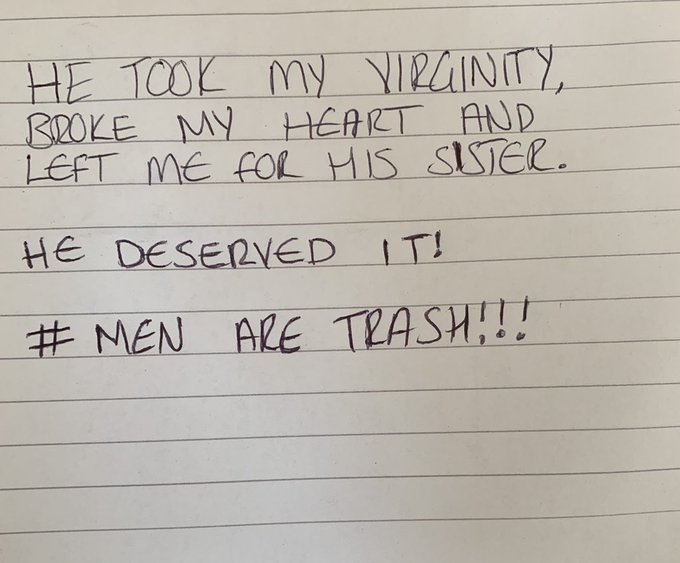 HE TOOK MY VIRGINITY,
BROKE MY HEART AND
LEFT ME FOR HIS SISTER.
HE DESERVED IT!
# MEN ARE TRASH!!!